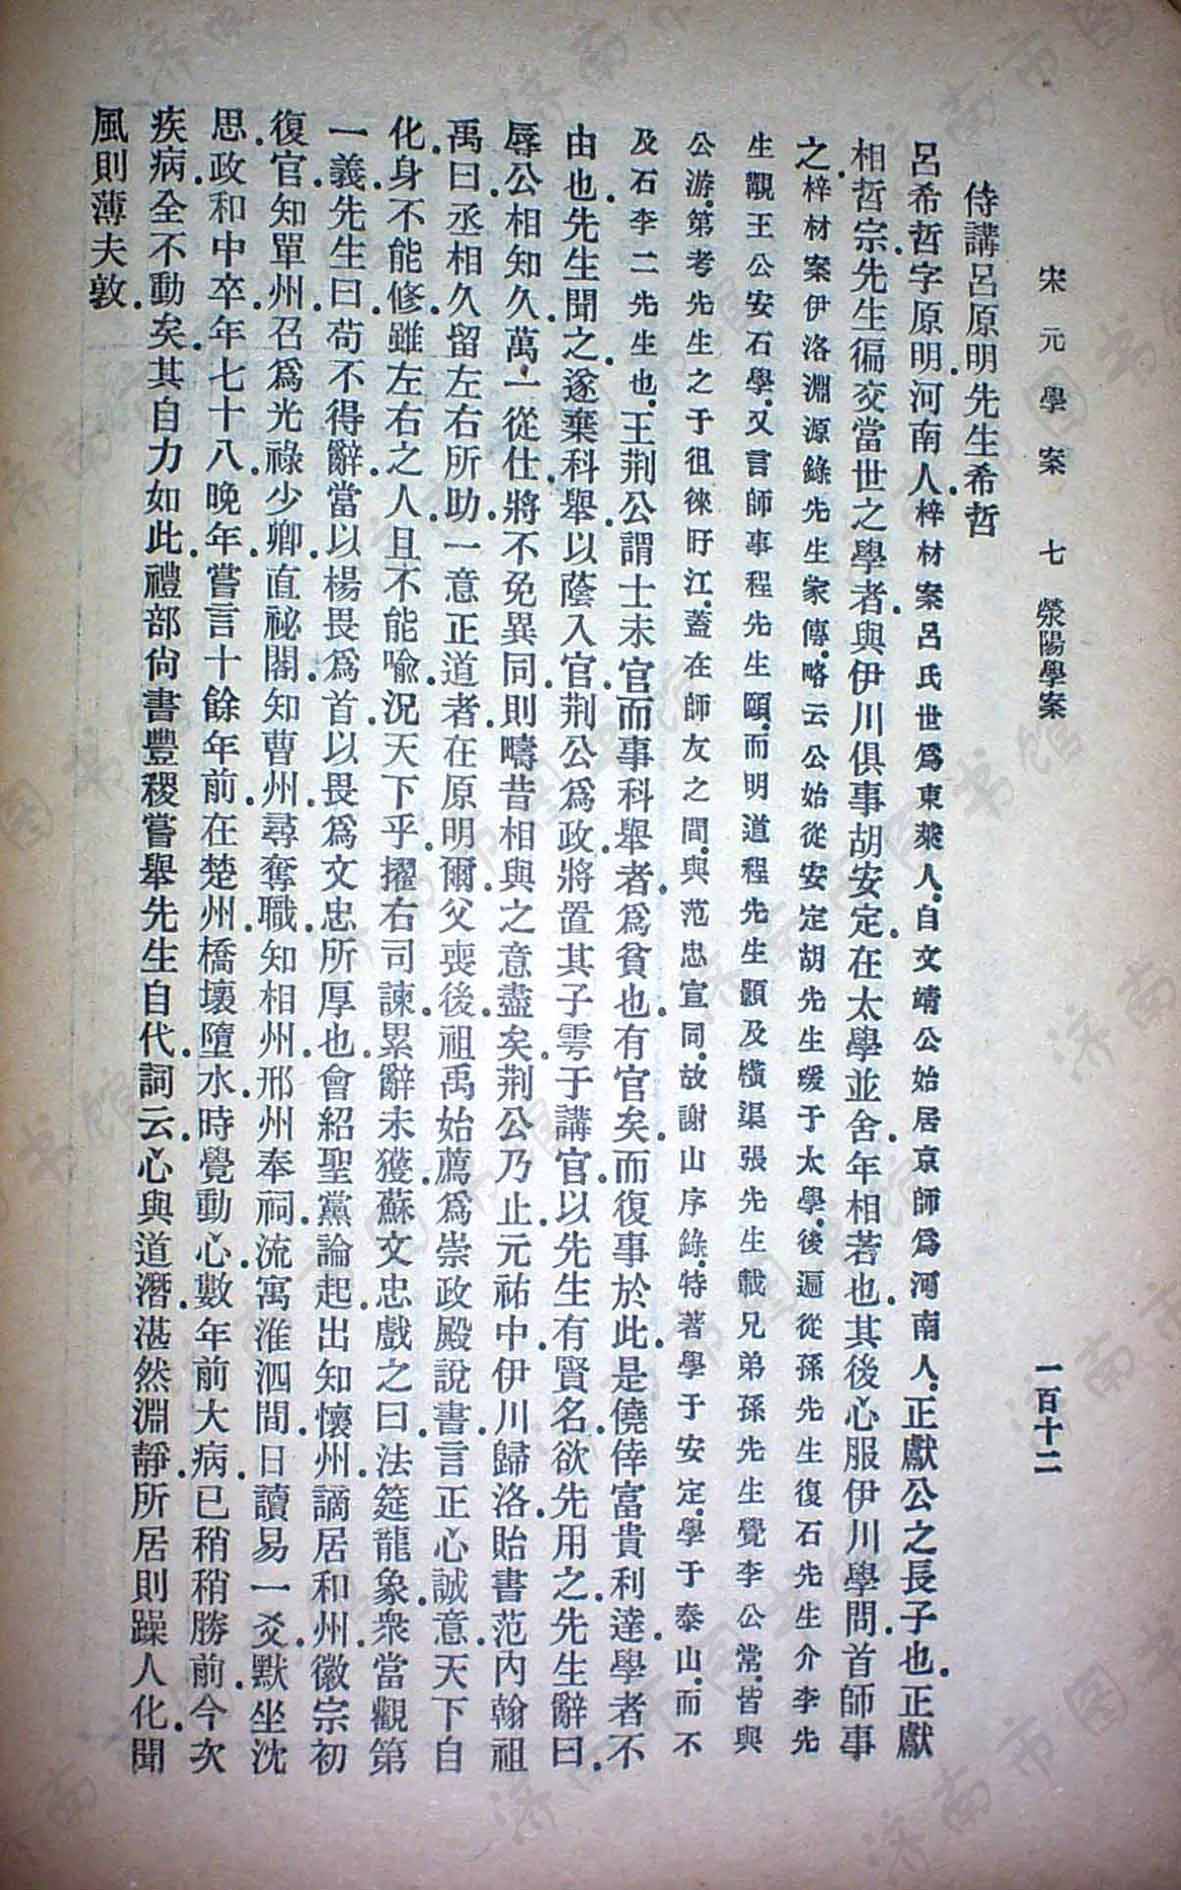 宋元學案 七 滎陽學案 一百十二
侍講呂原明先生希哲
呂希哲字原明河南人梓材案呂氏世爲東萊人自文靖公始居京師爲河南人正獻公之長子也正獻
相哲宗先生徧交當世之學者與伊川俱事胡安定在太學並舍年相若也其後心服伊川學問首師事
之梓材案伊洛淵源錄先生家傳略云公始從安定胡先生瑗于太學後遍從孫先生復石先生介李先
生覯王公安石學又言師事程先生頤而明道程先生顥及橫渠張先生載兄弟孫先生覺李公常皆與
公游第考先生之于徂徠盱江蓋在師友之間與范忠宣同故謝山序錄特著學于安定學于泰山而不
及石李二先生也王荆公謂士未官而事科舉者爲貧也有官矣而復事於此是僥倖富貴利達學者不
由也先生聞之遂棄科舉以蔭入官荆公爲政將置其子雱于講官以先生有賢名欲先用之先生辭曰
辱公相知久萬一從仕將不免異同則疇昔相與之意盡矣荆公乃止元祐中伊川歸洛貽書范內翰祖
禹曰丞相久留左右所助一意正道者在原明爾父喪後祖禹始薦爲崇政殿說書言正心誠意天下自
化身不能修雖左右之人且不能喻況天下乎擢右司諫累辭未獲蘇文忠戲之曰法筵龍象衆當觀第
一義先生曰苟不得辭當以楊畏爲首以畏爲文忠所厚也會紹聖黨論起出知懷州謫居和州徽宗初
復官知單州召爲光祿少卿直祕閣知曹州尋奪職知相州邢州奉祠流寓淮泗間日讀易一爻默坐沈
思政和中卒年七十八晚年嘗言十餘年前在楚州橋壞墮水時覺動心數年前大病已稍稍勝前今次
疾病全不動矣其自力如此禮部尙書豐稷嘗舉先生自代詞云心與道潛湛然淵靜所居則躁人化聞
風則薄夫敦